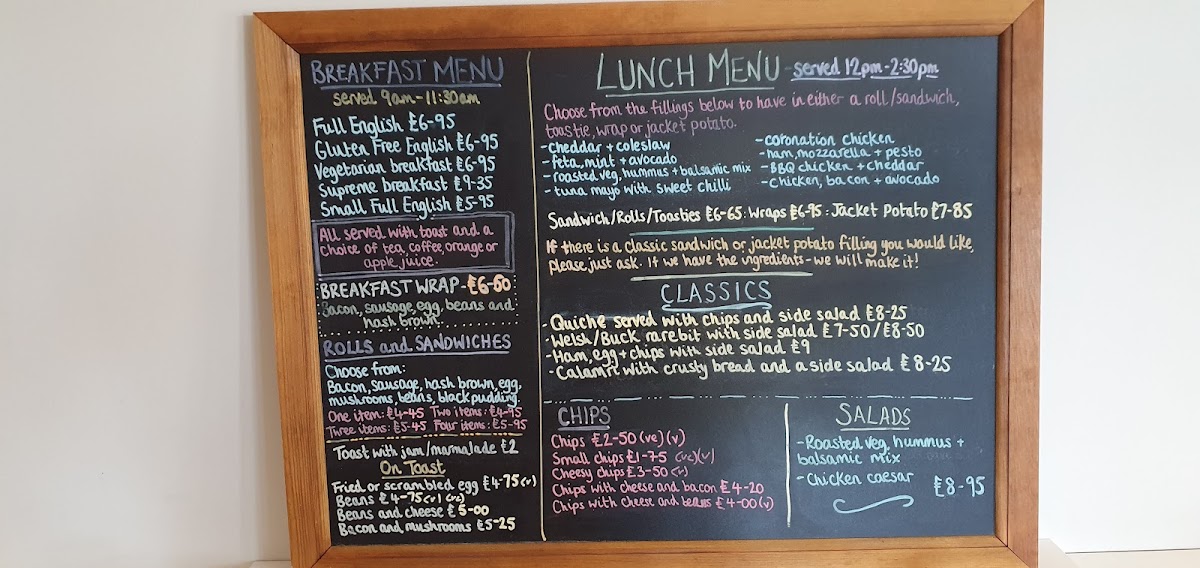 BREAKFAST MENU
served 9am-11:30am
Full English £6-95
Gluten Free English £6-95
Vegetarian breakfast £6-95
Supreme breakfast £9-35
Small Full English £5-95
All served with toast and a
choice of tea, coffee, orange or
apple juice.
BREAKFAST WRAP - £6-60
Bacon, sausage, egg, beans and
hash brown
ROLLS and SANDWICHES
Choose from:
Bacon, sausage, hash brown, egg,
mushrooms, beans, black pudding.
One item: £4-45 Two items: £4-95
Three items: £5-45 Four items: £5-95
Toast with jam/marmalade £2
On Toast
Fried or scrambled egg £4-75 (v)
Beans £4-75 (v) (ve)
Beans and cheese £5-00
Bacon and mushrooms £5-25
LUNCH MENU - served 12pm-2:30pm
Choose from the fillings below to have in either a roll/sandwich,
toastie, wrap or jacket potato.
- cheddar + coleslaw
- feta, mint + avocado
- roasted veg, hummus + balsamic mix
- tuna mayo with sweet chilli
- coronation chicken
- ham, mozzarella + pesto
- BBQ chicken + cheddar
- chicken, bacon + avocado
Sandwich/Rolls/Toasties £6-65: Wraps £6-95: Jacket Potato £7-85
If there is a classic sandwich or jacket potato filling you would like,
please just ask. If we have the ingredients - we will make it!
CLASSICS
- Quiche served with chips and side salad £8-25
- Welsh/Buck rarebit with side salad £7-50/£8-50
- Ham, egg + chips with side salad £9
- Calamri with crusty bread and a side salad £8-25
CHIPS
Chips £2-50 (ve) (v)
Small chips £1-75 (ve) (v)
Cheesy chips £3-50 (v)
Chips with cheese and bacon £4-20
Chips with cheese and beans £4-00 (v)
SALADS
- Roasted veg, hummus +
balsamic mix
- Chicken caesar
£8-95